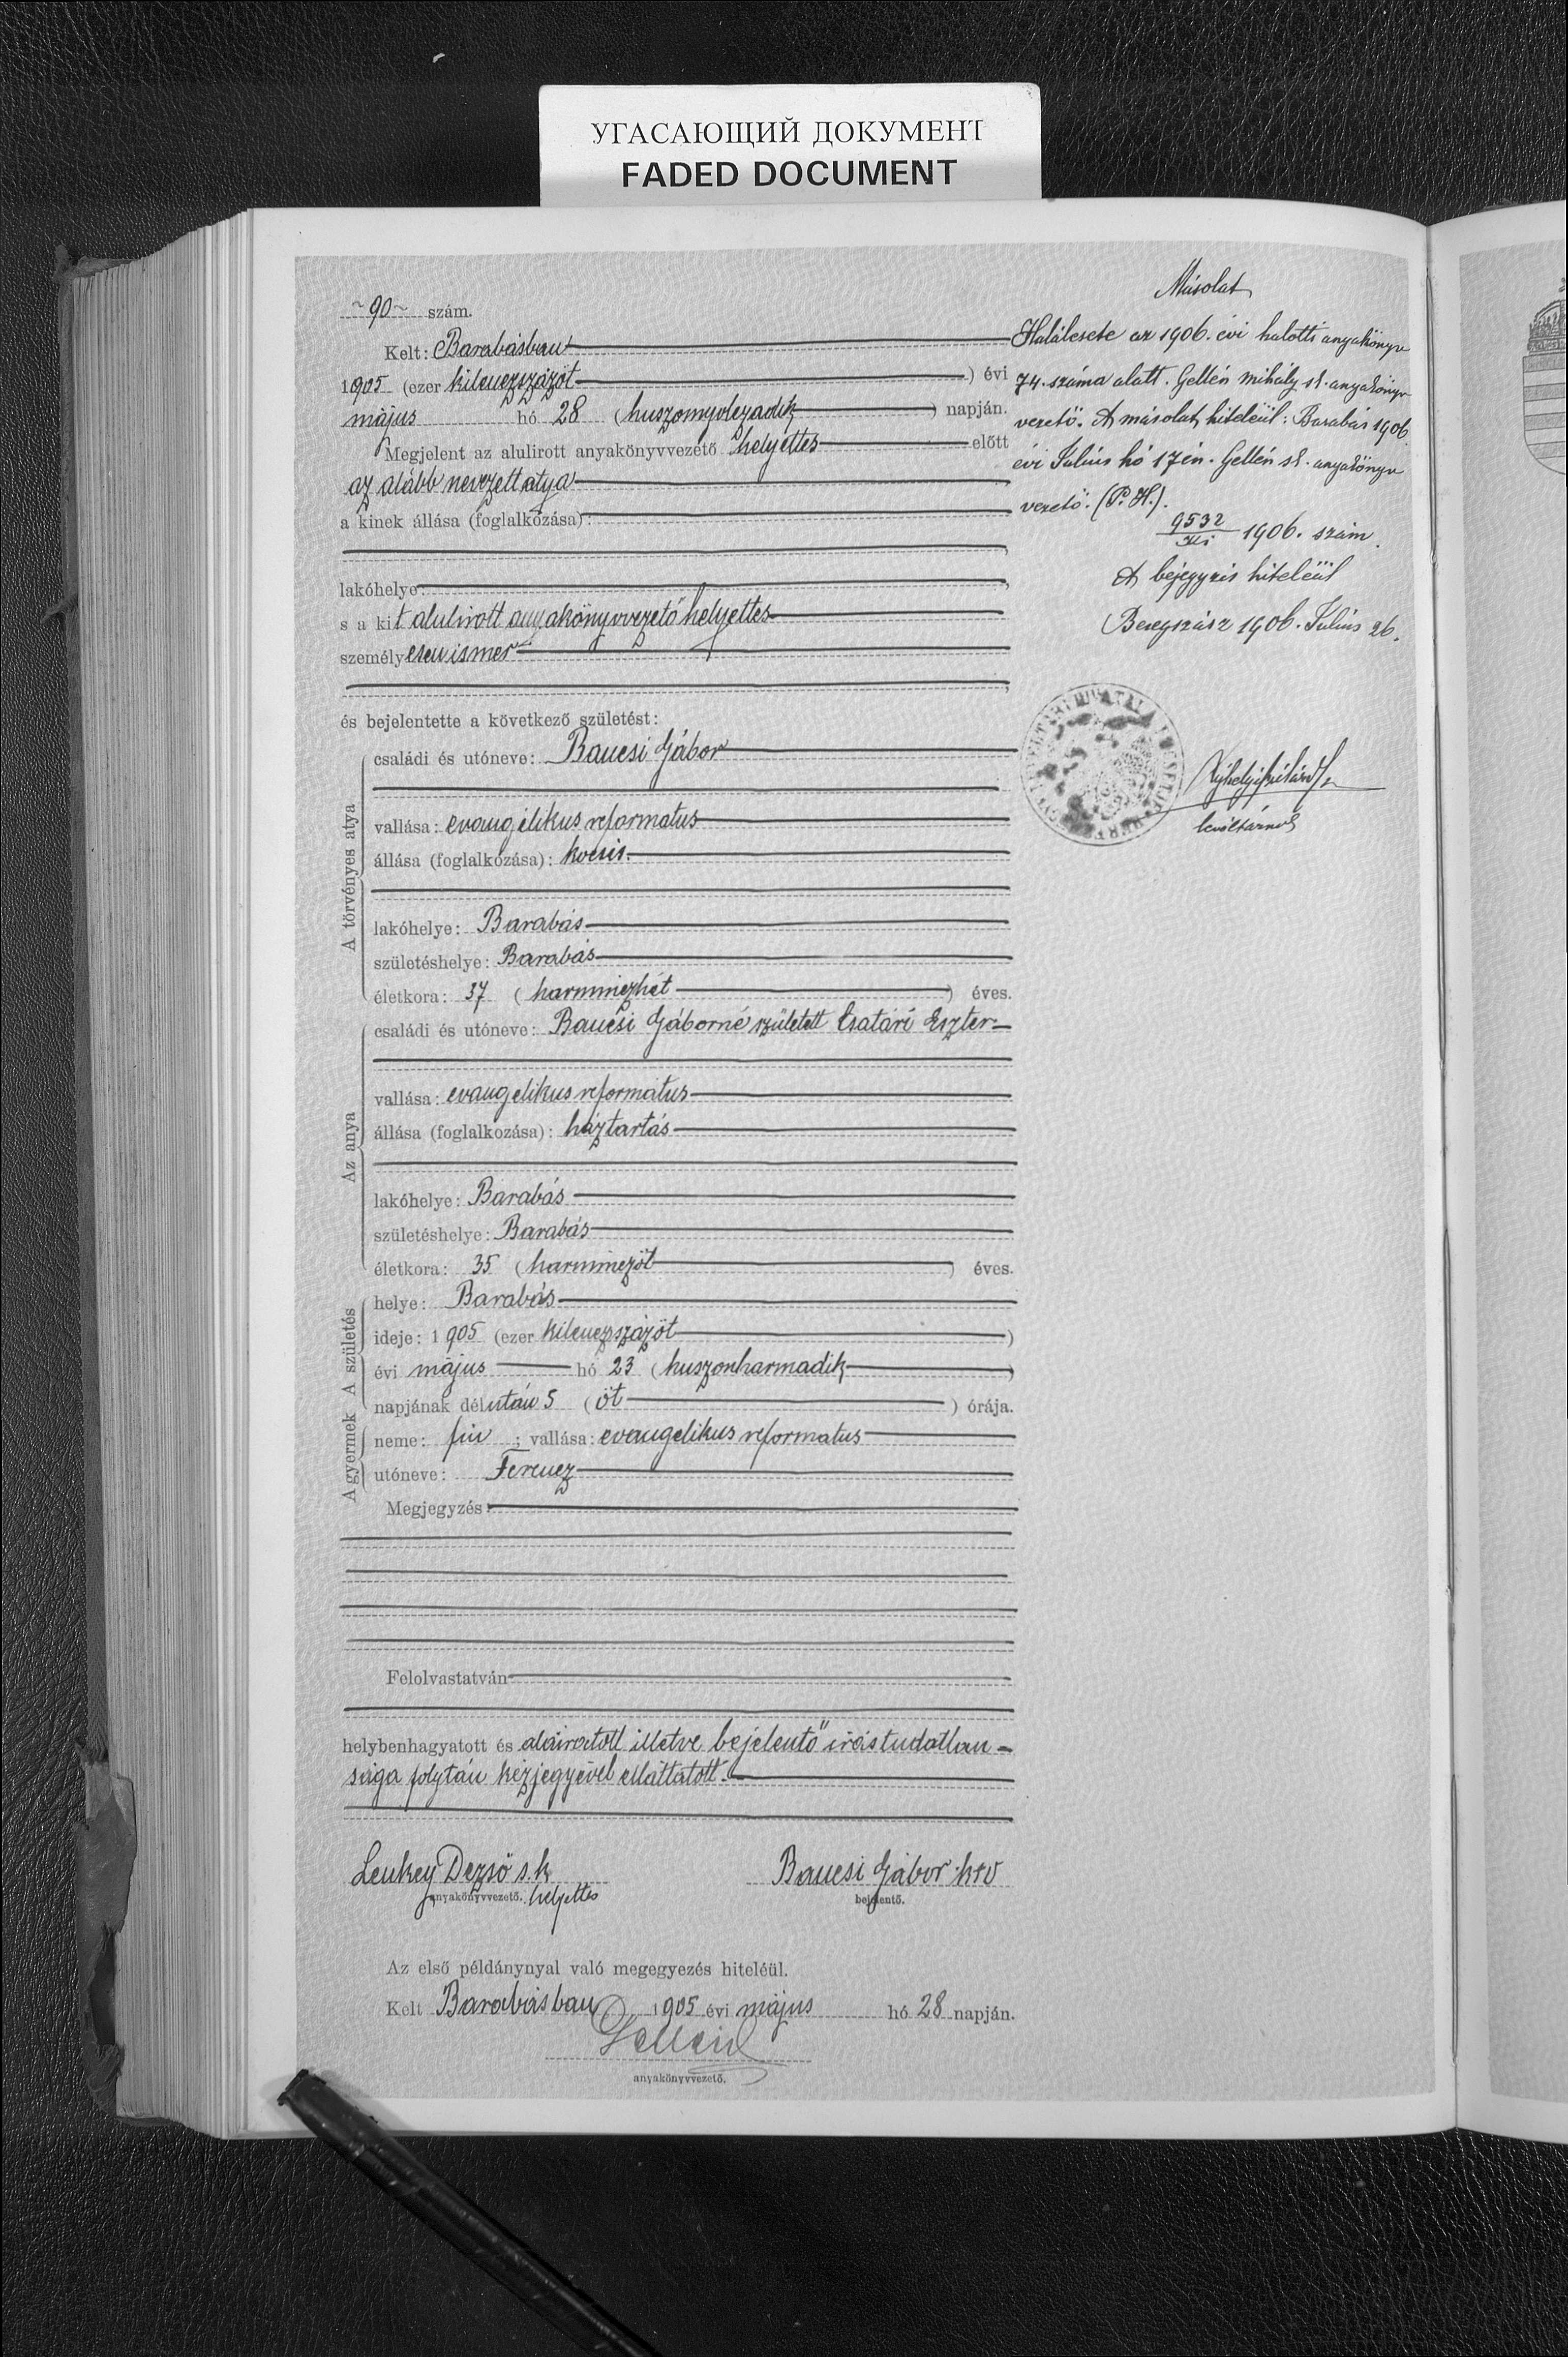 УГАСАЮЩИЙ ДОКУМЕНТ
FADED DOCUMENT
~90~ szám.
Kelt: Barabásban
1905 (ezer kilenczszázöt) évi
május hó 28 (huszonnyolczadik) napján.
Megjelent az alulirott anyakönyvvezető helyettes előtt
az alább nevezett atya
a kinek állása (foglalkozása):
lakóhelye:
s a kit alulirott anyakönyvvezető helyettes
személyesen ismer
és bejelentette a következő születést:
A törvényes atya
családi és utóneve: Bancsi Gábor
vallása: evangélikus reformatus
állása (foglalkozása): kocsis.
lakóhelye: Barabás
születéshelye: Barabás
életkora: 37 (harminczhét) éves.
Az anya
családi és utóneve: Bancsi Gáborné született Csatári Eszter
vallása: evangelikus református
állása (foglalkozása): háztartás
lakóhelye: Barabás
születéshelye: Barabás
életkora: 35 (harminczöt) éves.
A születés
helye: Barabás
ideje: 1905 (ezer kilenczszázöt)
évi május hó 23 (huszonharmadik)
napjának délután 5 (öt) órája.
A gyermek
neme: fiu ; vallása: evangelikus reformatus
utóneve: Ferencz
Megjegyzés:
Felolvastatván
helybenhagyatott és aláiratott illetve bejelentő irástudatlan-
sága folytán kézjegyével elláttatott.
Lenkey Dezső s.k. Bancsi Gábor ktv
anyakönyvvezető. helyettes bejelentő.
Az első példánynyal való megegyezés hiteléül.
Kelt Barabásban 1905 évi május hó 28 napján.
Gellén
anyakönyvvezető.
Másolat
Halálesete az 1906. évi halotti anyakönyv
74. száma alatt. Gellén Mihály sk. anyakönyv
vezető. A másolat hiteléül: Barabás 1906
évi Július hó 17én. Gellén sk. anyakönyv
vezető. (P. H.).
9532 1906. szám.
A bejegyzés hiteléül
Beregszász 1906. Július 26.
levéltárnok